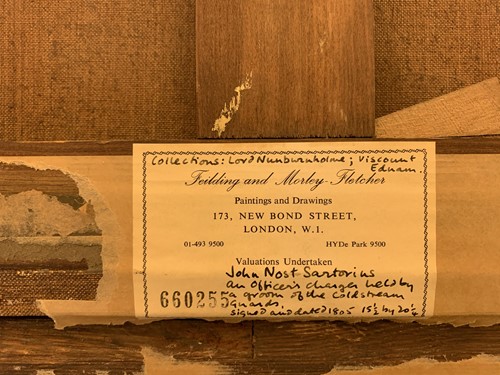 Collections: Lord Nunburnholme; Viscount
Ednam.
Feilding and Morley-Fletcher
Paintings and Drawings
173, NEW BOND STREET,
LONDON, W.1.
01-493 9500 HYDe Park 9500
Valuations Undertaken
John Nost Sartorius
an Officer's charger held by
a groom of the Coldstream
guards.
signed and dated 1805 15½ by 20¼
660255